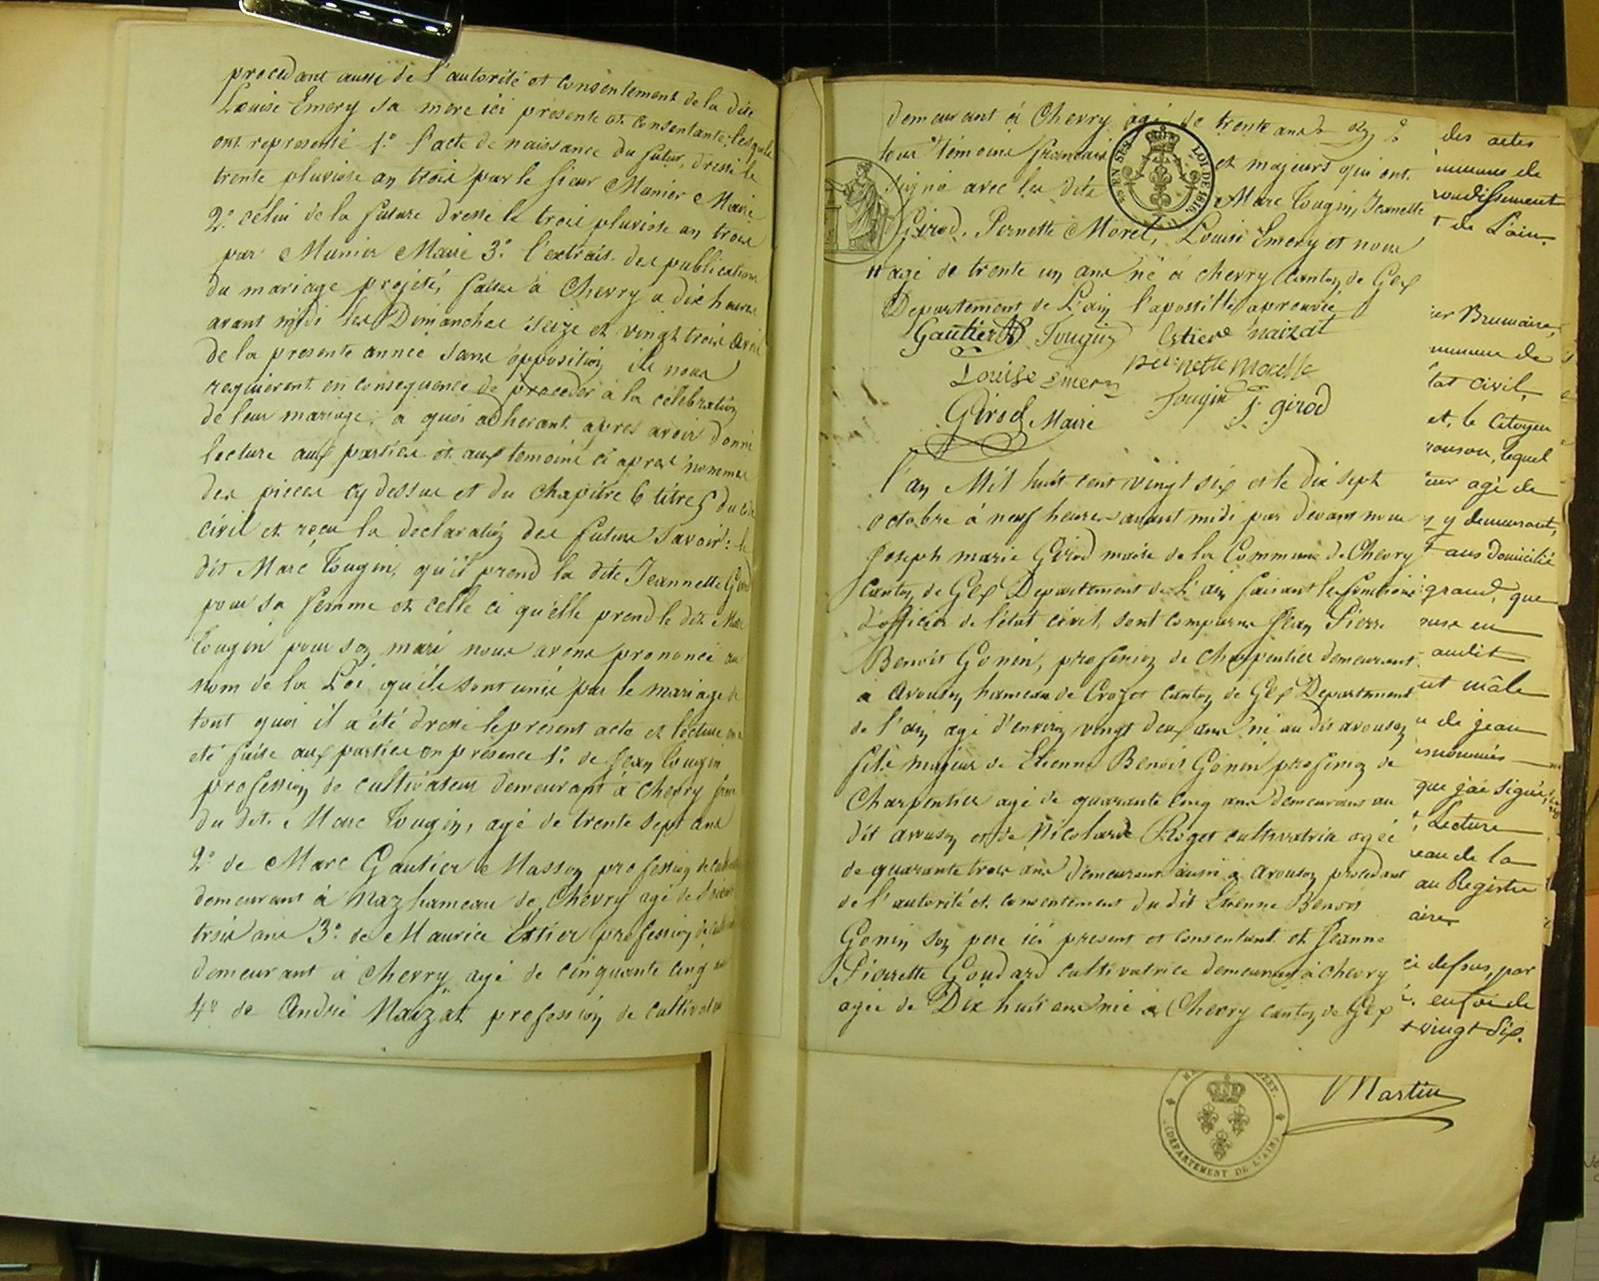 procedant aussi de l'autorité et consentement de la dite
Louise Emery sa mere ici presente et consentante, lesquels
ont representé 1.° l'acte de naissance du futur dressé le
trente pluviose an trois par le sieur Munier Maire
2.° celui de la future dressé le trois pluviose an trois
par Munier Maire 3.° l'extrait des publications
du mariage projeté, faites à Chevry a dix heures
avant midi les Dimanches seize et vingt trois avril
de la presente année sans opposition, ils nous
requierent en consequence de proceder à la célébration
de leur mariage, a quoi adherant apres avoir donné
lecture aux parties et aux temoins ci apres nommés
des pieces cy dessus et du chapitre 6 titre 5 du code
civil et reçu la declaration des futurs savoir: le
dit Marc Tougin, qu'il prend la dite Jeannette Girod
pour sa femme et celle ci qu'elle prend le dit Marc
Tougin pour son mari nous avons prononcé au
nom de la Loi qu'ils sont unis par le mariage de
tout quoi il a été dressé le present acte et lecture en a
eté faite aux parties en presence 1.° de Jean Tougin
profession de cultivateur demeurant à Chevry frere
du dit Marc Tougin, agé de trente sept ans
2.° de Marc Gautier Masson profession de
demeurant à Naz hameau de Chevry agé de
trois ans 3.° de Maurice Estier profession de
demeurant à Chevry agé de cinquante cinq ans
4.° de André Naizat profession de cultivateur
demeurant à Chevry agé de trente ans
tous temoins français et majeurs qui ont
signé avec les dits Marc Tougin, Jeannette
Girod, Pernette Morel, Louise Emery et nous
agé de trente un ans né à Chevry Canton de Gex
Departement de L'ain l'apostille aprouvée
Gautier Tougin Estier Naizat
Louise Emery pernette Morelle
Girod Maire Tougin J. girod
l'an Mil huit cent vingt six et le dix sept
octobre à neuf heures avant midi par devant nous
Joseph marie Girod maire de la Commune de Chevry
Canton de Gex Departement de L'ain faisant les fonctions
d'officier de l'état civil, sont comparus Jean Pierre
Benoit Gonin, profession de Charpentier demeurant
à avouson hameau de Crozet Canton de Gex Departement
de l'ain agé d'environ vingt deux ans né au dit avouson
fils majeur de Etienne Benoit Gonin profession de
Charpentier agé de quarante cinq ans demeurant au
dit avouson et de Nicolarde Roget cultivatrice agée
de quarante trois ans demeurant aussi à avouson procedant
de l'autorité et consentement du dit Etienne Benoit
Gonin son pere ici present et consentant et Jeanne
Pierrette Goudard cultivatrice demeurant à chevry
agée de Dix huit ans née à Chevry canton de Gex
EN SUS
LOI DE 1816.
des actes
mmune de
rondissement
t de L'ain.
ier Brumaire,
mmune de
tat civil,
et, le Citoyen
vouson, lequel
eur agé de
y demeurant,
ans domicilié
grand, que
nuse en
audit
ut mâle
de jean
enommés
que j'ai signé,
Lecture
eau de la
au Registre
aire
ci dessus, par
en foi de
t vingt Six.
Martin
(DEPARTEMENT DE L'AIN)